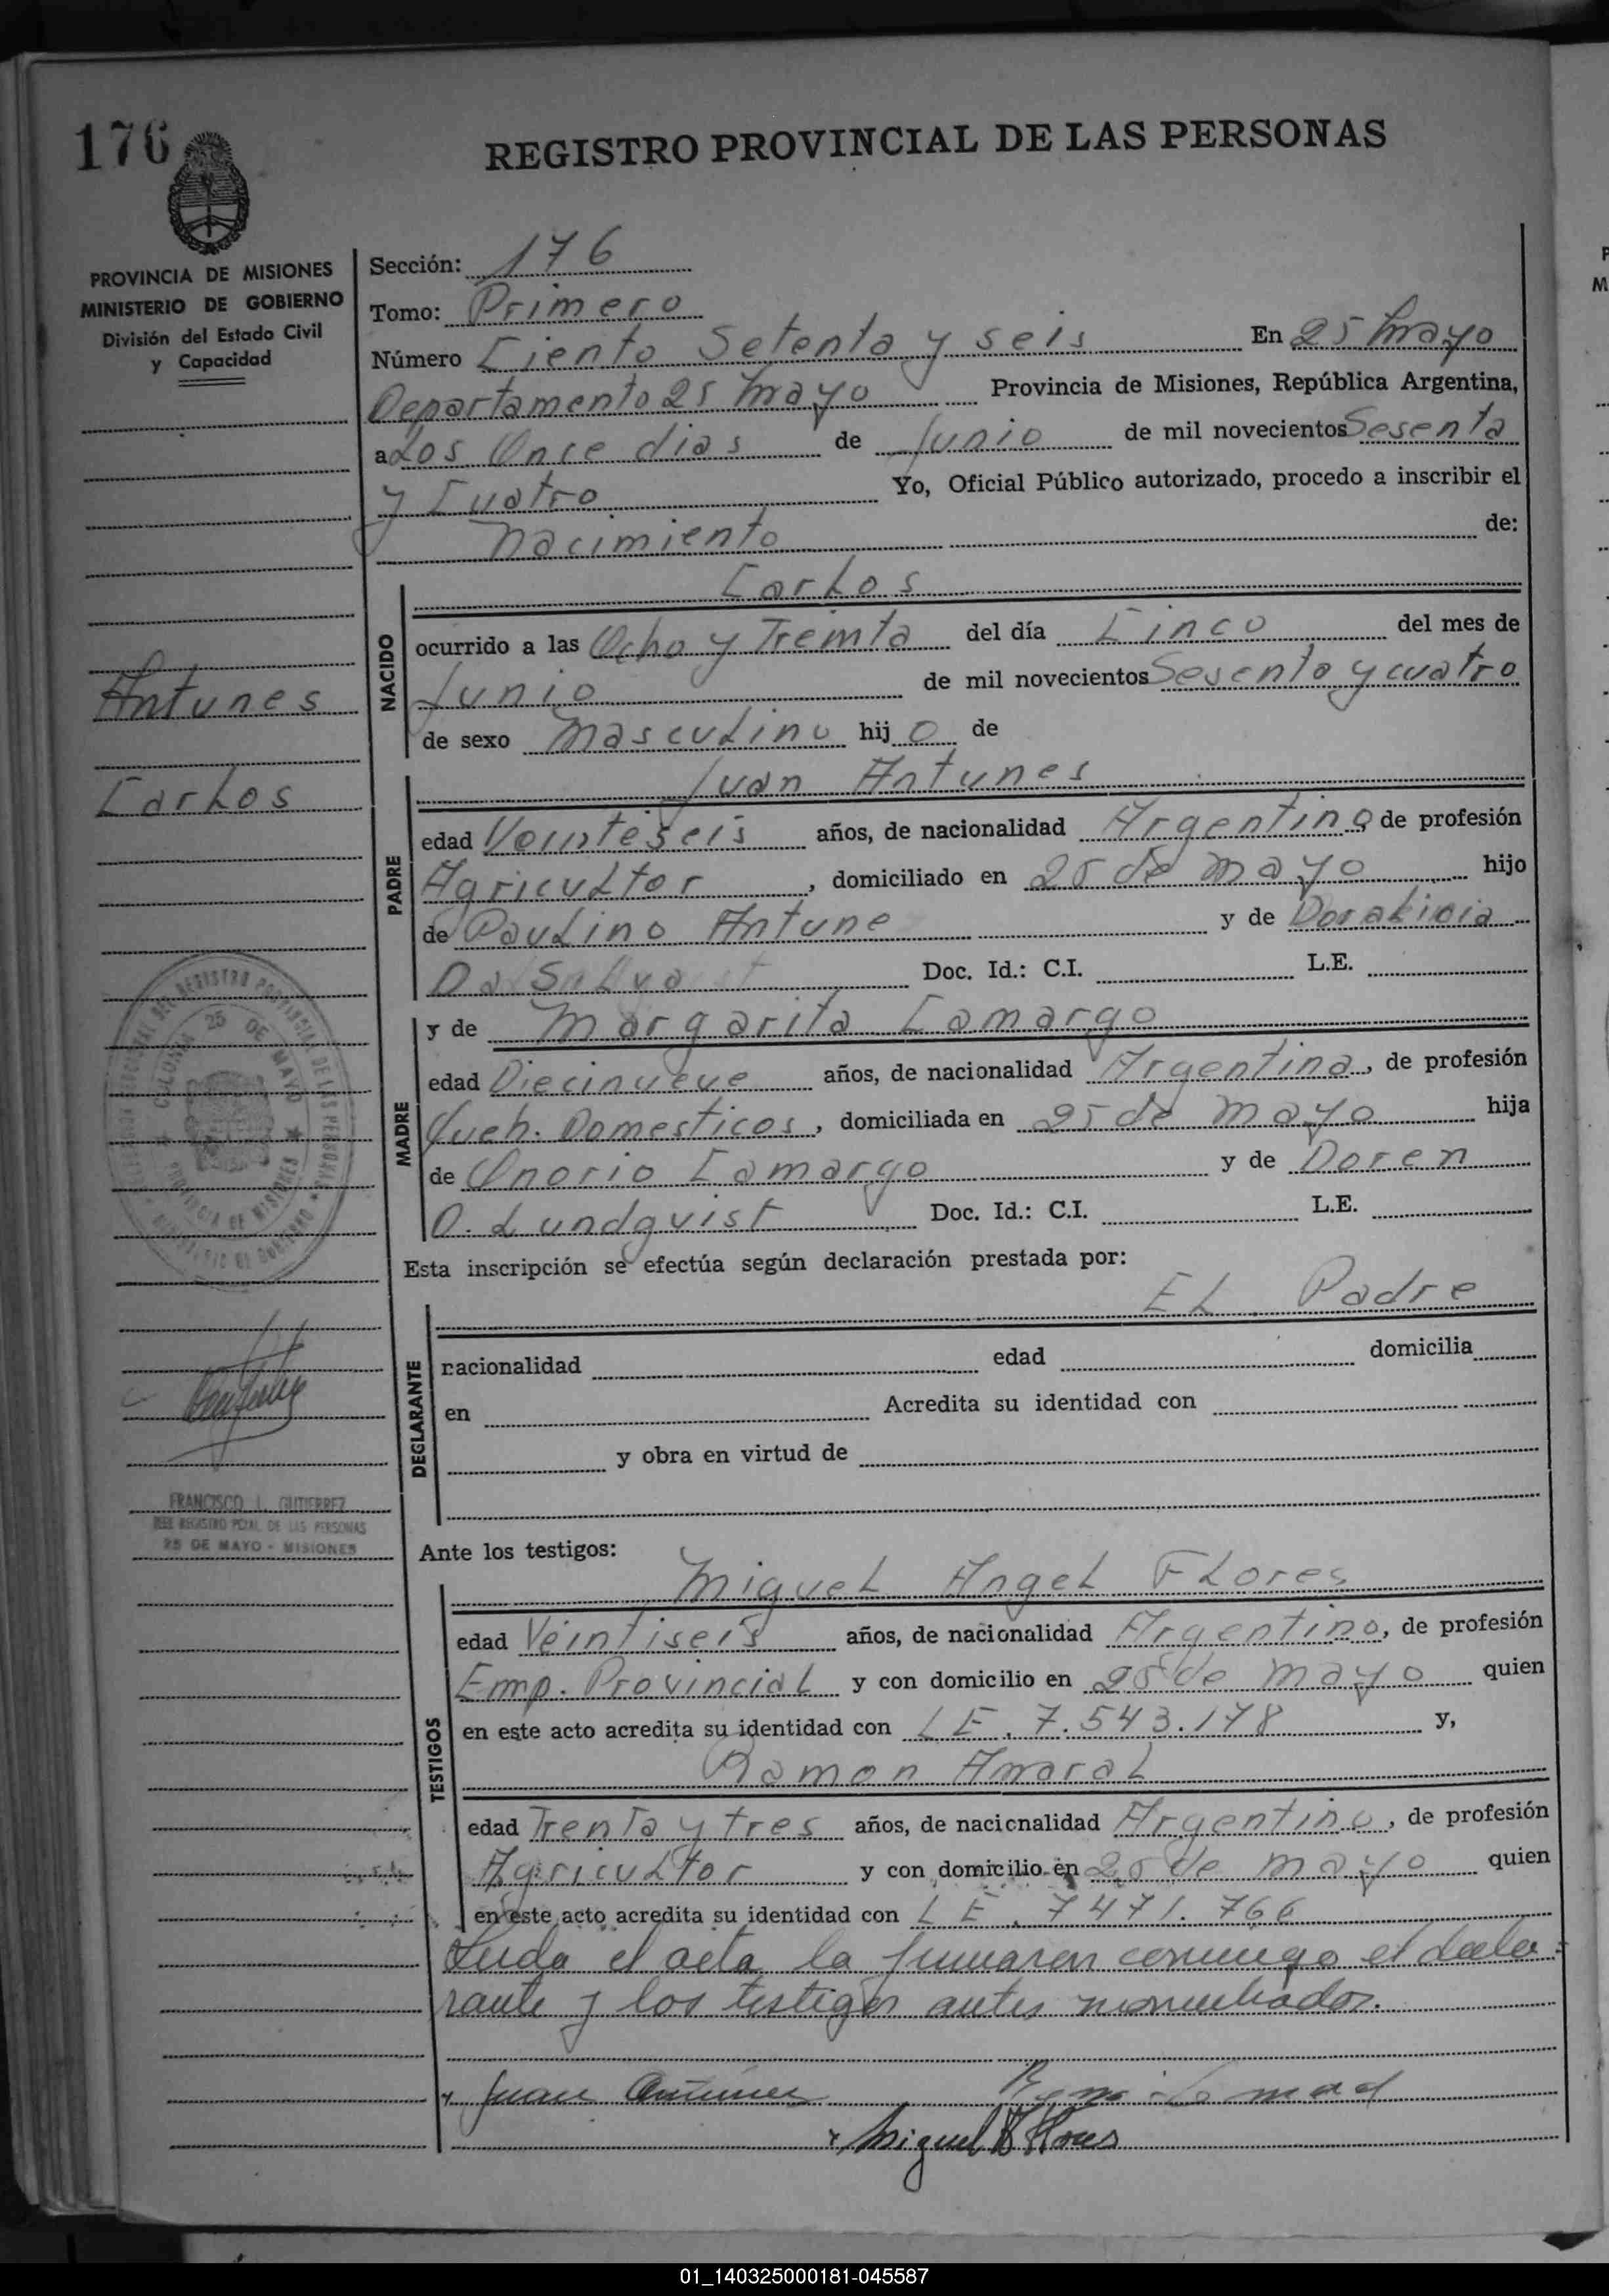 176
REGISTRO PROVINCIAL DE LAS PERSONAS
PROVINCIA DE MISIONES
MINISTERIO DE GOBIERNO
División del Estado Civil
y Capacidad
Sección: 176
Tomo: Primero
Número Ciento Setenta y seis En 25 Mayo
Departamento 25 Mayo Provincia de Misiones, República Argentina,
a Los Once dias de Junio de mil novecientos Sesenta
y Cuatro Yo, Oficial Público autorizado, procedo a inscribir el
Nacimiento de:
Antunes
Carlos
NACIDO
Carlos
ocurrido a las Ocho y Treinta del día Cinco del mes de
Junio de mil novecientos Sesenta y cuatro
de sexo Masculino hijo de
PADRE
Juan Antunes
edad Veinteseis años, de nacionalidad Argentino de profesión
Agricultor, domiciliado en 25 de Mayo hijo
de Paulino Antune y de
Da Doc. Id.: C.I. L.E.
MADRE
y de Margarita Camargo
edad Diecinueve años, de nacionalidad Argentina, de profesión
Queh. Domesticos, domiciliada en 25 de Mayo hija
de Onorio Camargo y de Doren
O. Lundqvist Doc. Id.: C.I. L.E.
Esta inscripción se efectúa según declaración prestada por:
DECLARANTE
El Padre
nacionalidad edad domicilia
en Acredita su identidad con
y obra en virtud de
COLONIA 25 DE MAYO
PROVINCIA DE MISIONES
FRANCISCO I. GUTIERREZ
REGISTRO PCIAL DE LAS PERSONAS
25 DE MAYO - MISIONES
Ante los testigos:
TESTIGOS
Miguel Angel Flores
edad Veintiseis años, de nacionalidad Argentino, de profesión
Emp. Provincial y con domicilio en 25 de Mayo quien
en este acto acredita su identidad con LE. 7.543.178 y,
Ramon Amaral
edad Trenta y tres años, de nacionalidad Argentino, de profesión
Agricultor y con domicilio en 25 de Mayo quien
en este acto acredita su identidad con LE. 7471.766
Leida el acta la firmaron conmigo el decla-
rante y los testigos antes nombrados.
Juan Antunes
Miguel A Flores
01_140325000181-045587